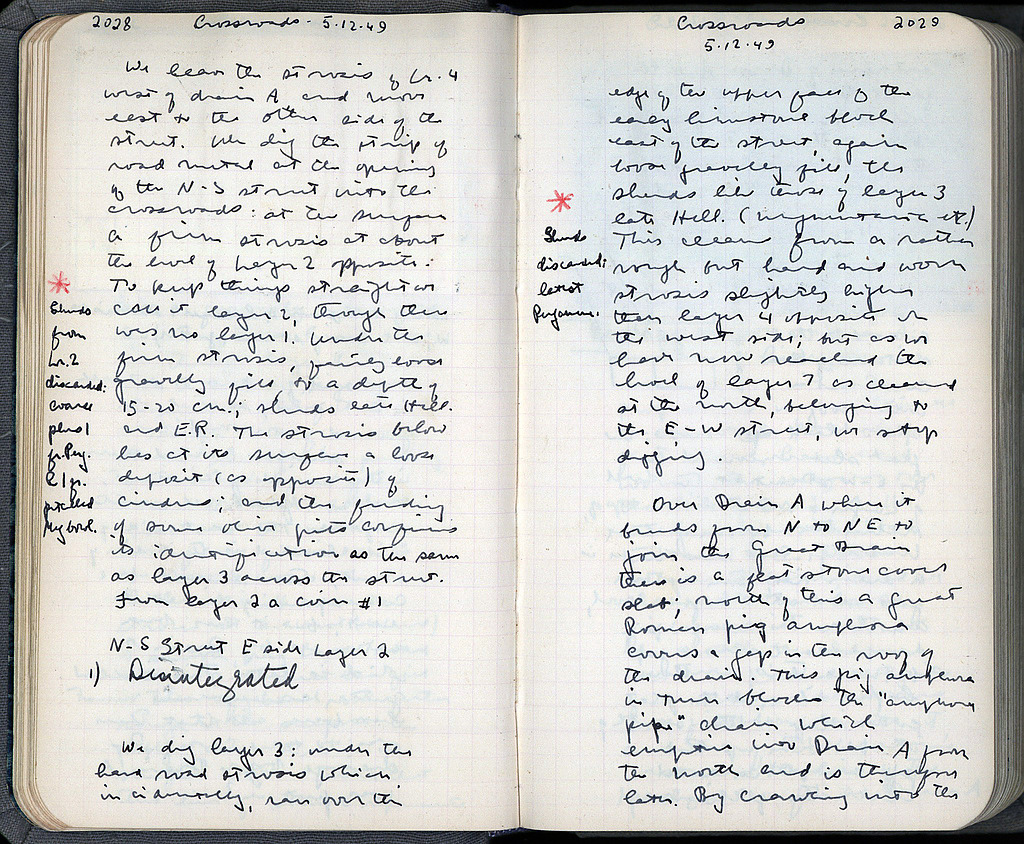 2028 Crossroads - 5.12.49
We leave the strosis of Lr. 4
west of drain A and move
east to the other side of the
street. We dig the strip of
road metal at the opening
of the N-S street into the
crossroads: at the surface
a firm strosis at about
the level of layer 2 opposite.
To keep things straight we
call it layer 2, though there
was no layer 1. Under the
firm strosis, fairly loose
gravelly fill to a depth of
15-20 cm.; sherds late Hell.
and E.R. The strosis below
has at its surface a loose
deposit (as opposite) of
cinders; and the finding
of some olive pits confirms
its identification as the same
as layer 3 across the street.
From layer 2 a coin #1
N-S Street E side Layer 2
1) Disintegrated
We dig layer 3: under the
hard road strosis which
incidentally, ran over the
Sherds
from
Lr. 2
discarded:
coarse
plus 1
fr. Perg.
& 1 fr.
Meg bowl.
Crossroads 2029
5.12.49
edge of the upper face of the
early limestone block
east of the street, again
loose gravelly fill, the
sherds like those of layer 3
late Hell. (unguentaria etc)
This cleans from a rather
rough but hard and worn
strosis slightly higher
than layer 4 opposite on
the west side; but as we
have now reached the
level of layer 7 as cleaned
at the north, belonging to
the E-W street, we stop
digging.
Over Drain A where it
bends from N to NE to
join the Great Drain
there is a flat stone cover
slab; north of this a great
Roman pig amphora
covers a gap in the roof of
the drain. This pig amphora
in turn blocks the "amphora
pipe" drain which
empties into Drain A from
the north and is therefore
later. By crawling into the
Sherds
discarded:
latest
Pergamene.